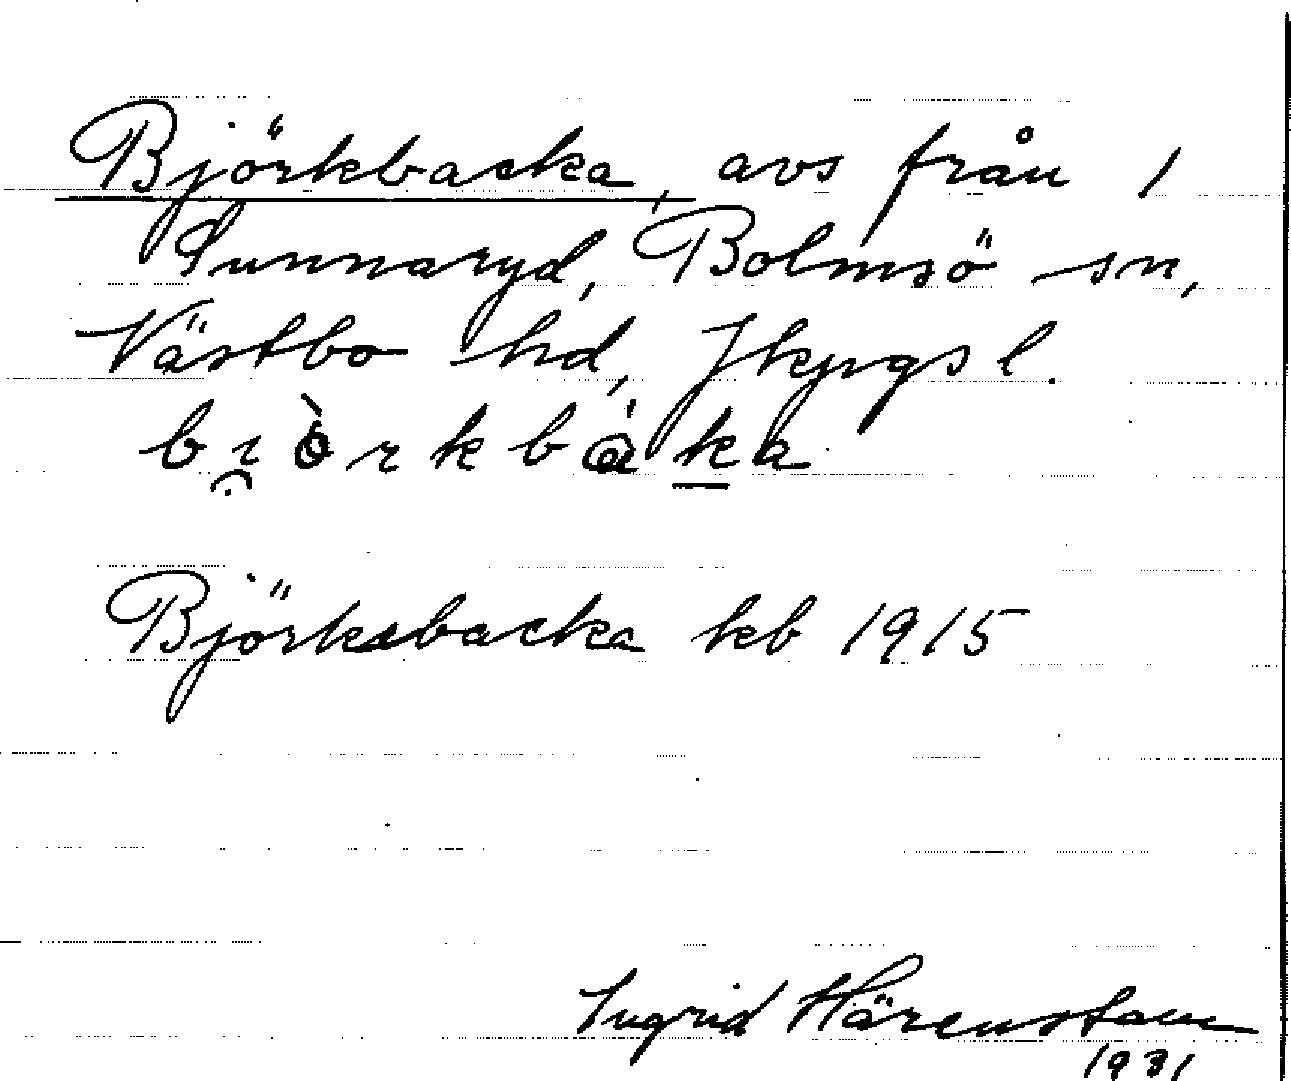 Björkbacka, avs från 1
Sunnaryd, Bolmsö sn,
Västbo hd, Jkpgs l.
Björksbacka kb 1915
Ingrid Härenstam
1931